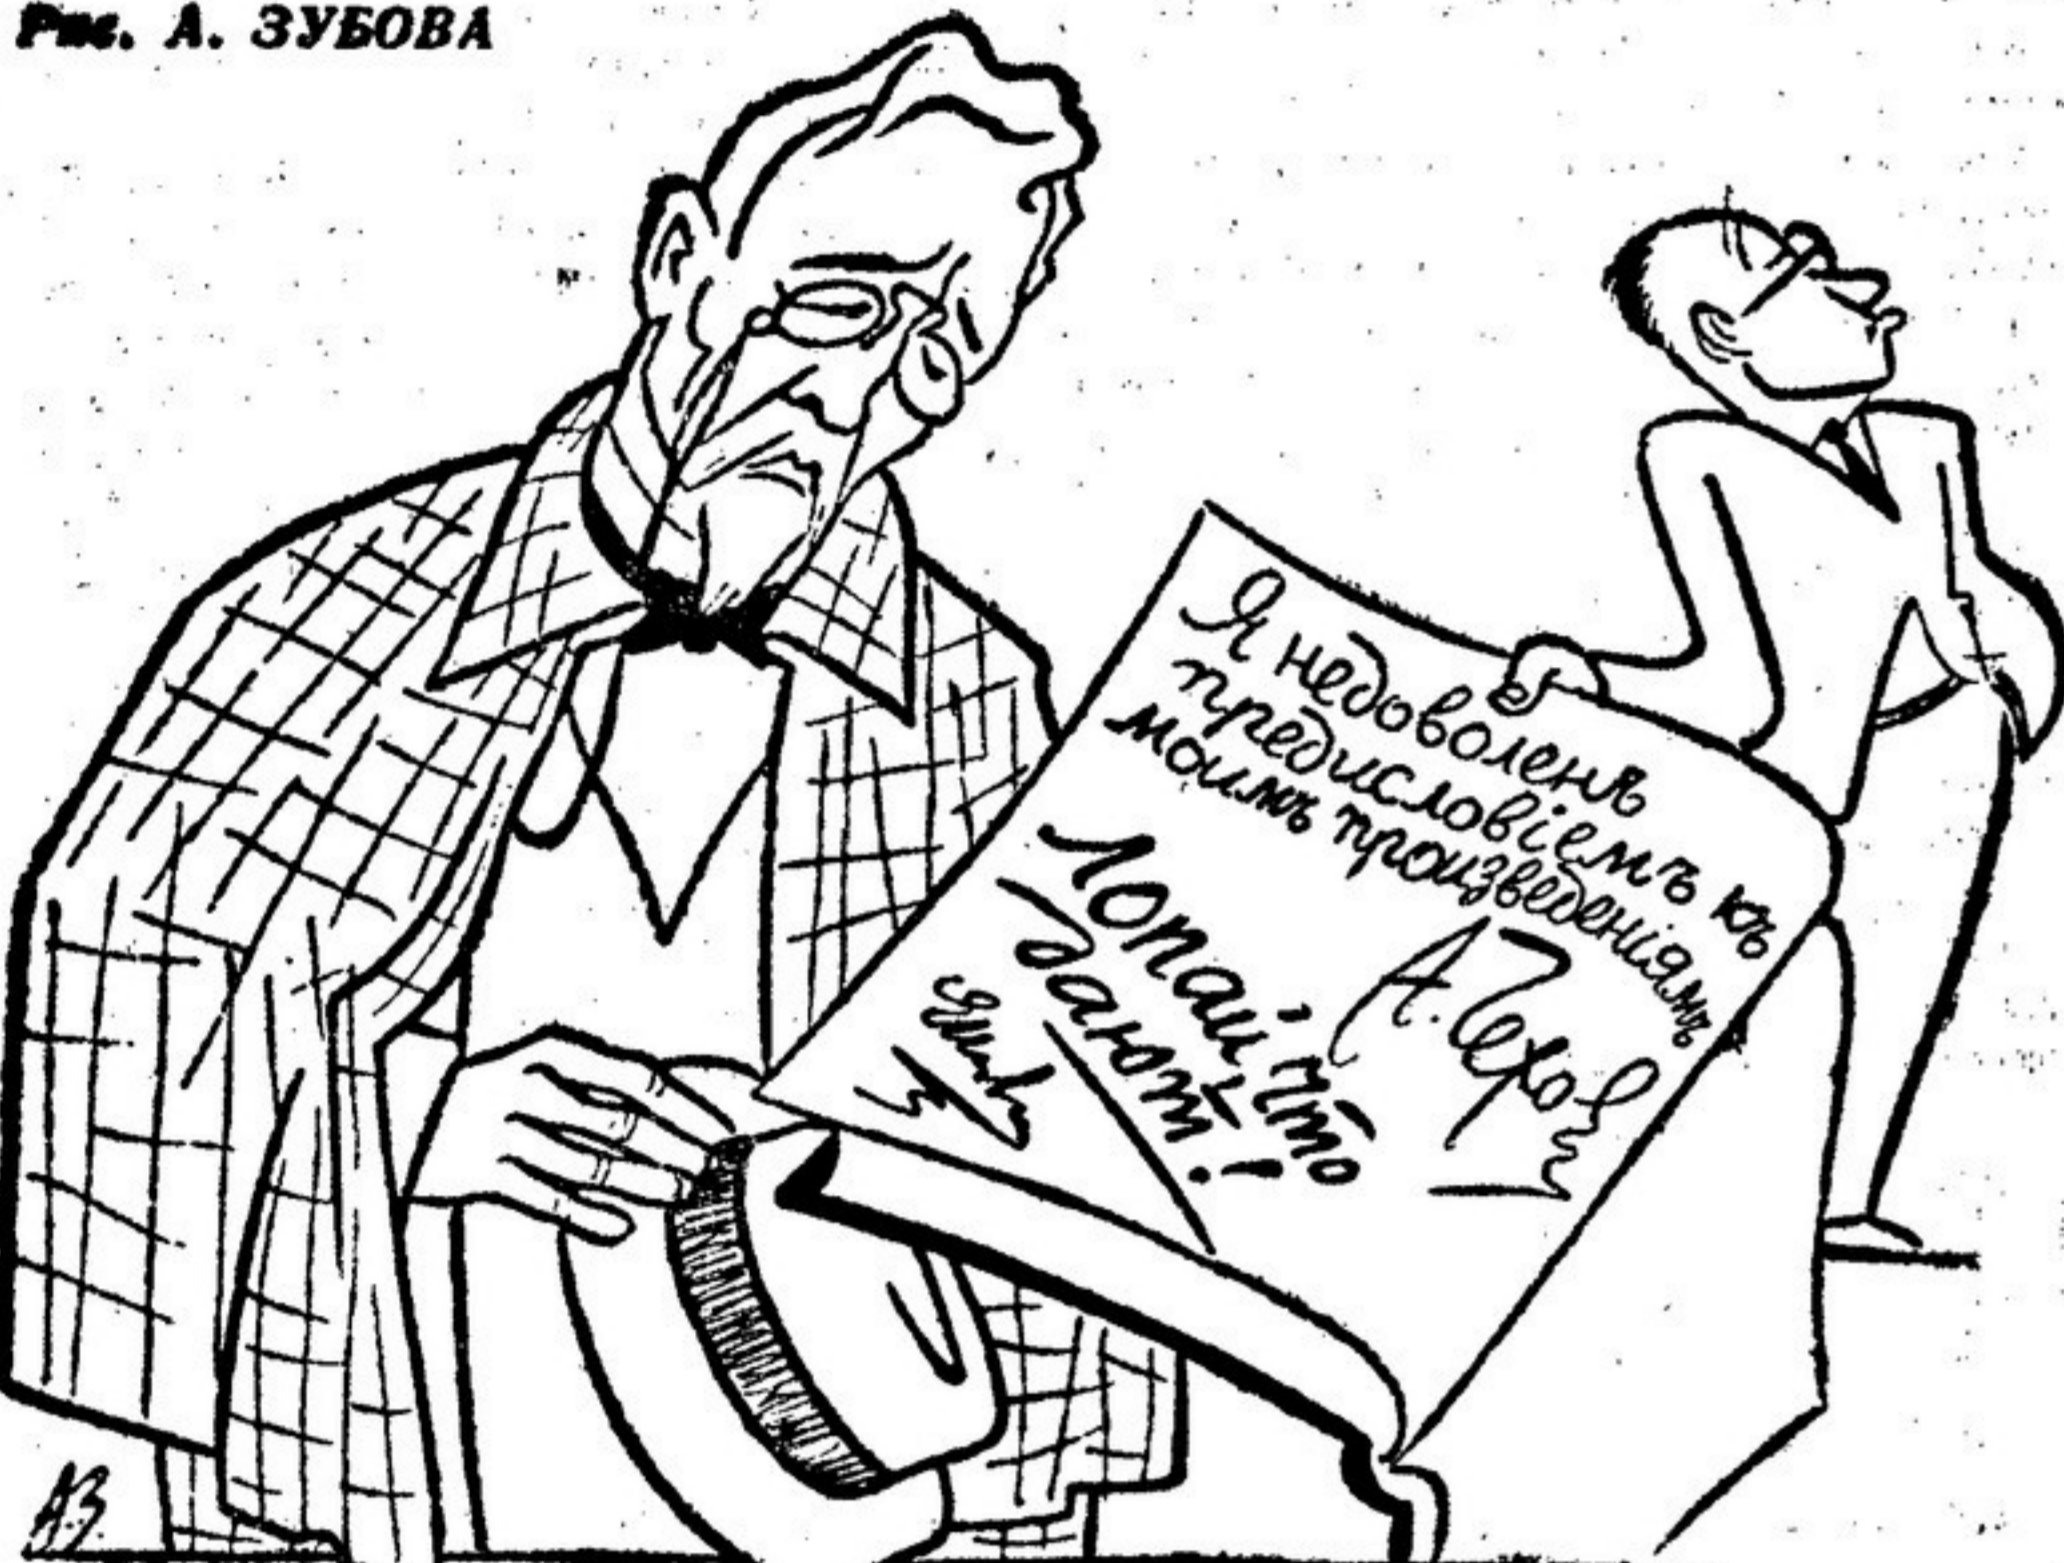 Рис. А. ЗУБОВА
Я недоволенъ
предисловіемъ къ
моимъ произведеніямъ
А. Чехов
Лопай что
дают!
А.З.